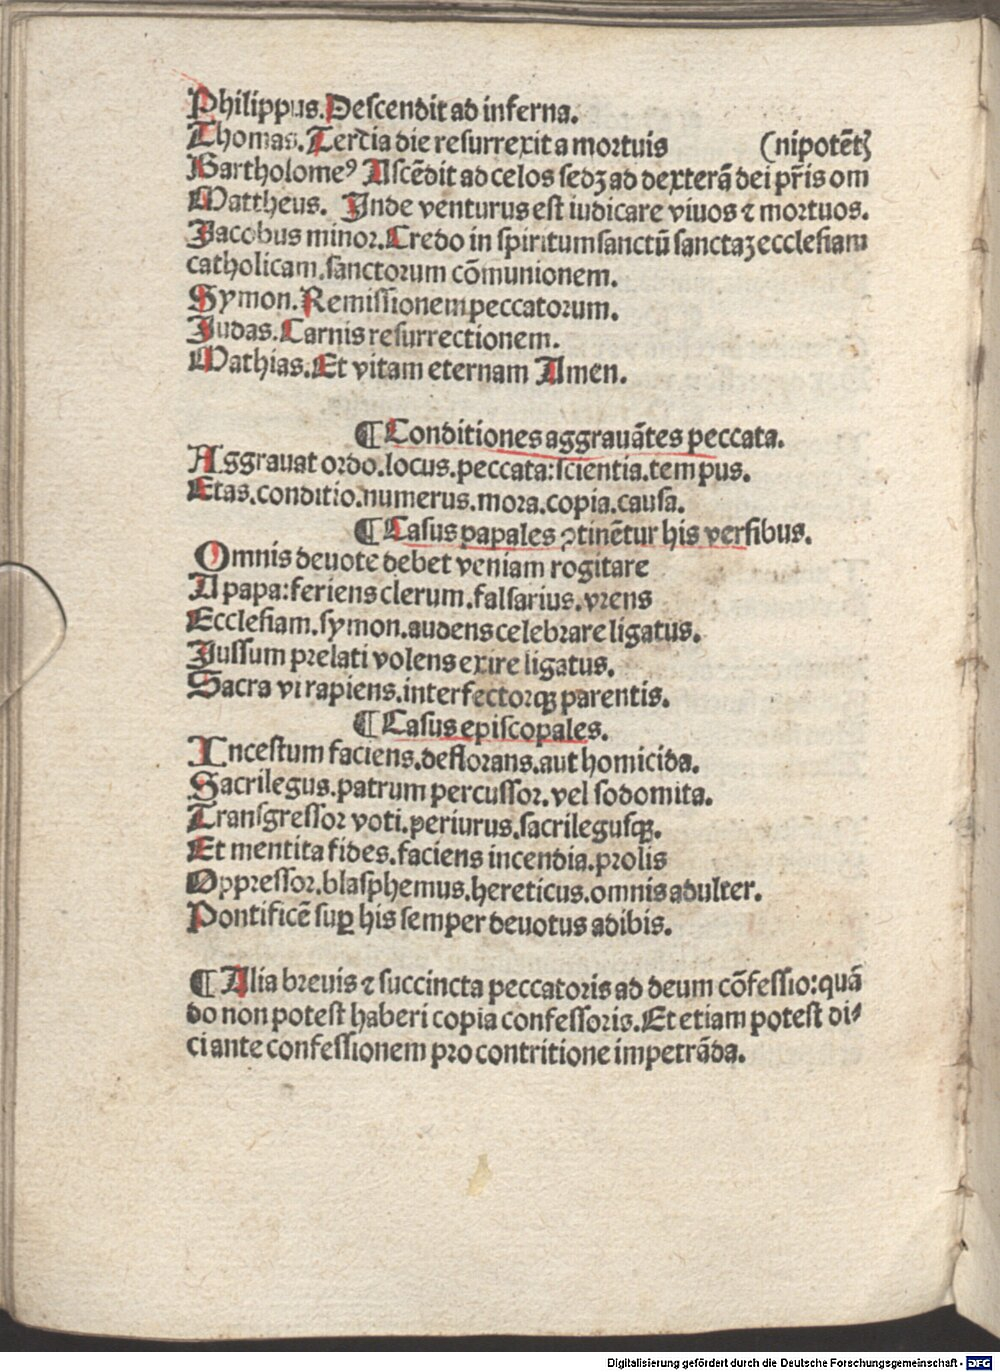 Philippus. Descendit ad inferna.
Thomas. Tertia die resurrexit a mortuis (nipotētꝭ
Bartholomeꝰ Ascēdit ad celos sedꝫ ad dexterā dei pr̄is om
Mattheus. Inde venturus est iudicare viuos ⁊ mortuos.
Jacobus minor. Credo in spiritum sanctū sanctaꝫ ecclesiam
catholicam. sanctorum cōmunionem.
Symon. Remissionem peccatorum.
Judas. Carnis resurrectionem.
Mathias. Et vitam eternam Amen.
¶ Conditiones aggrauātes peccata.
Aggrauat ordo. locus. peccata: scientia. tempus.
Etas. conditio. numerus. mora. copia. causa.
¶ Casus papales ꝯtinētur his versibus.
Omnis deuote debet veniam rogitare
A papa: feriens clerum. falsarius. vrens
Ecclesiam. symon. audens celebrare ligatus.
Jussum prelati volens exire ligatus.
Sacra vi rapiens. interfectorqꝫ parentis.
¶ Casus episcopales.
Incestum faciens. deflorans. aut homicida.
Sacrilegus. patrum percussor. vel sodomita.
Transgressor voti. periurus. sacrilegusqꝫ.
Et mentita fides. faciens incendia. prolis
Oppressor. blasphemus. hereticus. omnis adulter.
Pontificē suꝑ his semper deuotus adibis.
¶ Alia breuis ⁊ succincta peccatoris ad deum cōfessio: quā
do non potest haberi copia confessoris. Et etiam potest di⸗
ci ante confessionem pro contritione impetrāda.
Digitalisierung gefördert durch die Deutsche Forschungsgemeinschaft - DFG